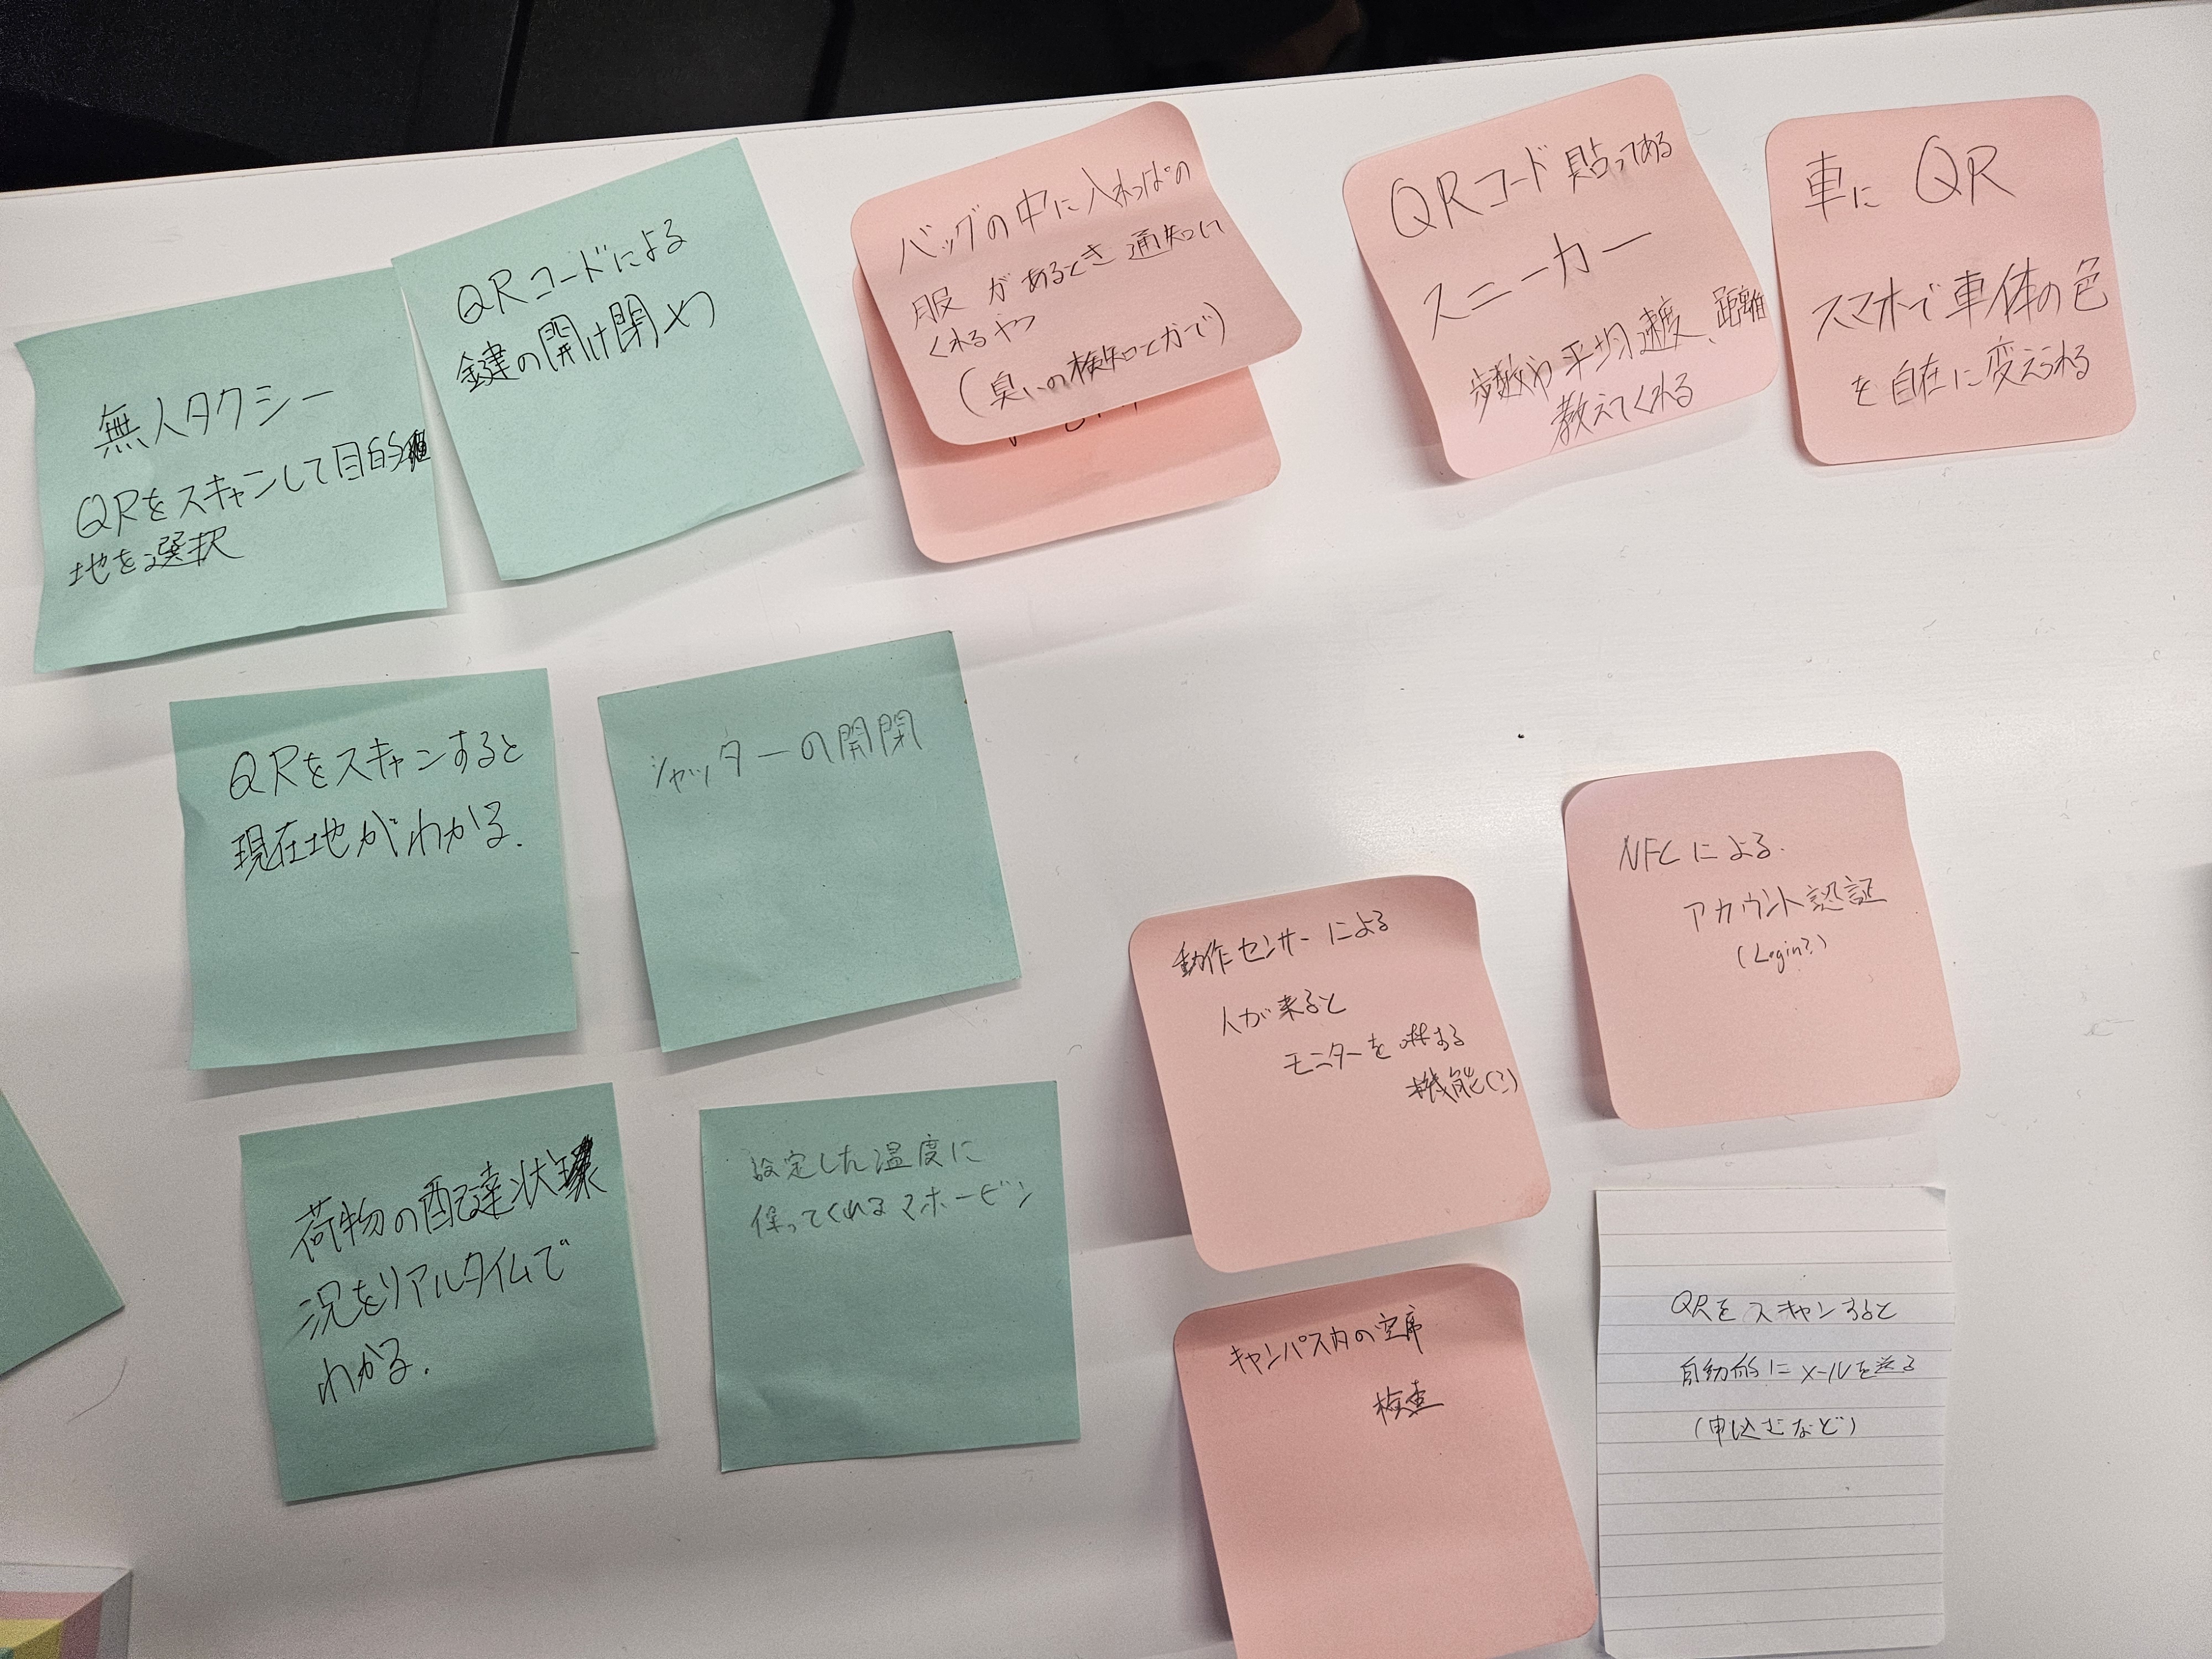 無人タクシー
QRをスキャンして目的
地を選択
QRコードによる
鍵の開け閉め
バッグの中に入れっぱの
服があるとき通知して
くれるやつ
(臭いの検知とかで)
QRコード貼ってある
スニーカー
歩数や平均速度、距離
教えてくれる
車にQR
スマホで車体の色
を自在に変えられる
QRをスキャンすると
現在地がわかる.
シャッターの開閉
NFCによる.
アカウント認証
(Login?)
動作センサーによる
人が来ると
モニターをoffする
機能(?)
荷物の配達状
況をリアルタイムで
わかる.
設定した温度に
保ってくれるマホービン
キャンパス内の空席
検査
QRをスキャンすると
自動的にメールを送る
(申し込むなど)